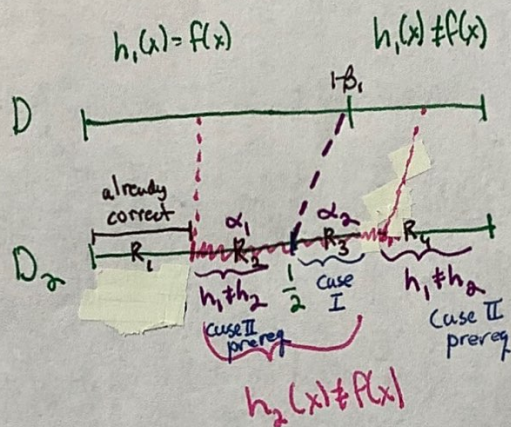 h₁(x) = f(x)
h₁(x) ≠ f(x)
1-β₁
D
already
correct
α₁
α₂
D₂
R₁
R₂
R₃
R₄
h₁≠h₂
1/2
case
I
h₁≠h₂
case II
prereq
case II
prereq
h₂(x)≠f(x)